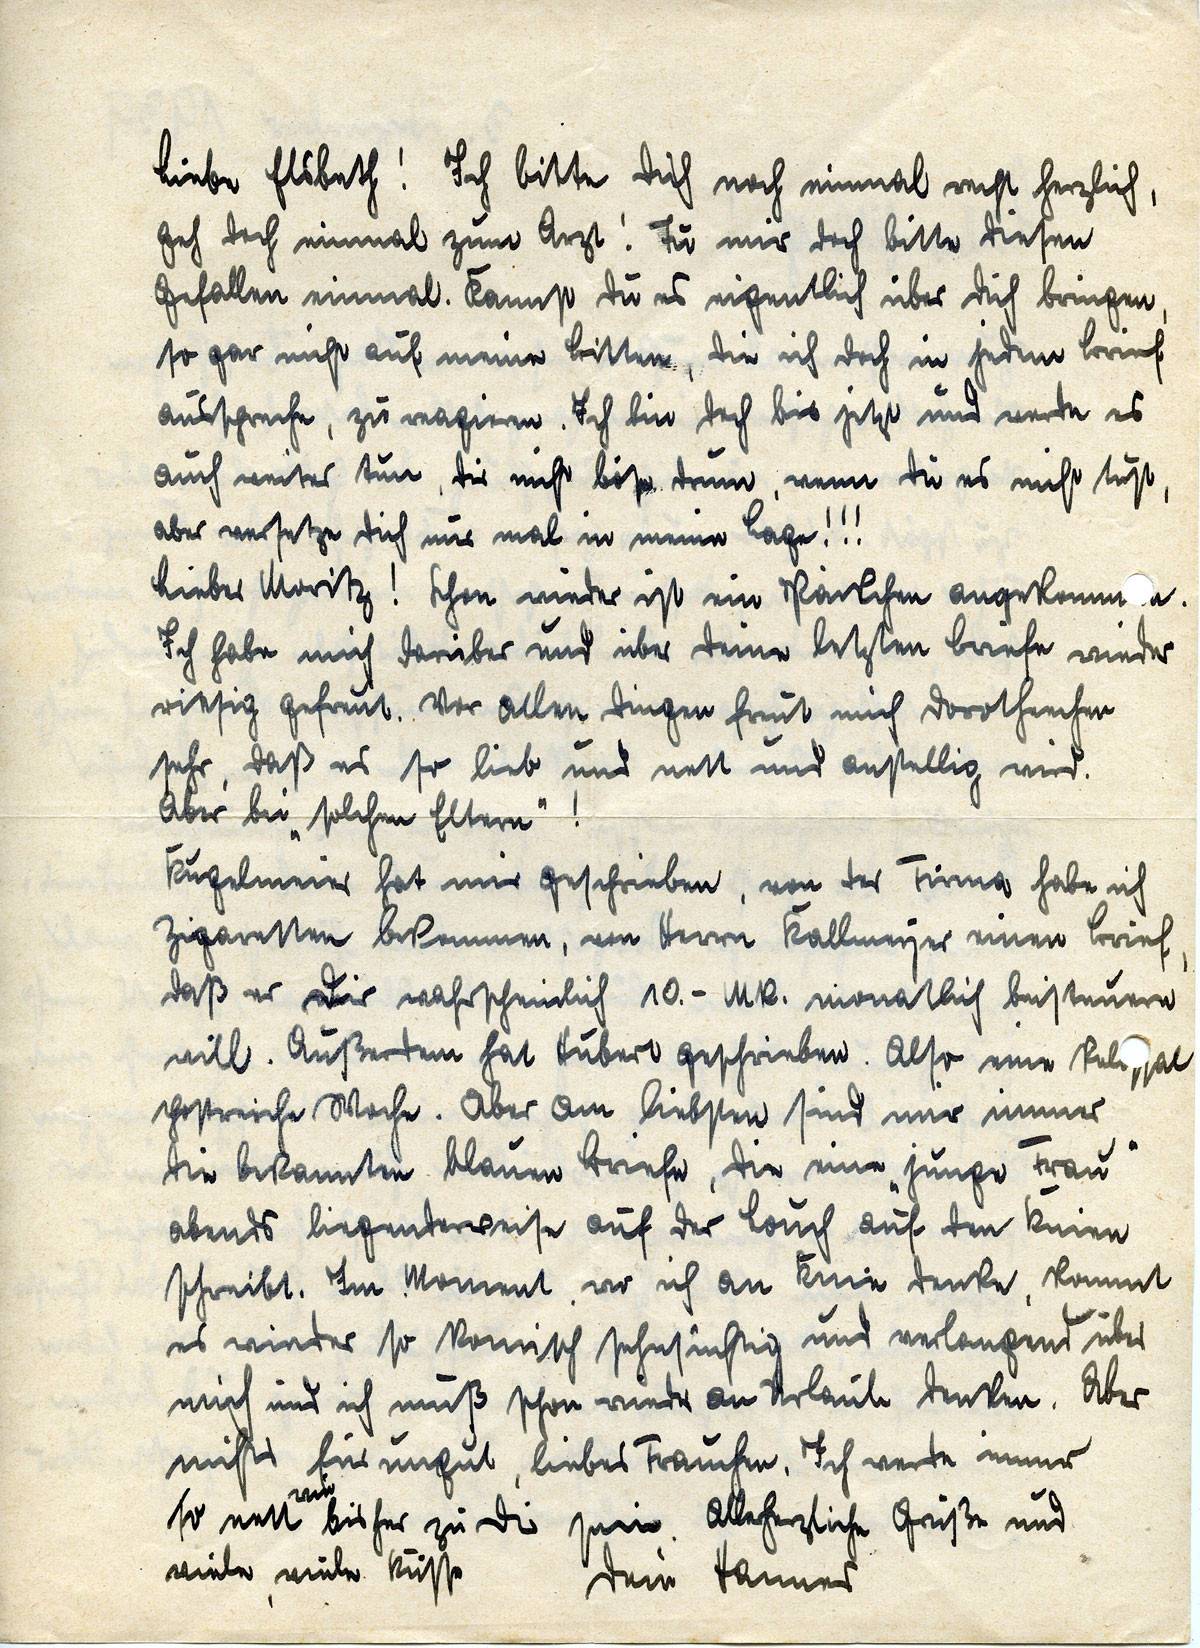 Liebe Elsbeth! Ich bitte Dich noch einmal recht herzlich,
geh doch einmal zum Arzt! Tu mir doch bitte diesen
Gefallen einmal. Kannst Du es eigentlich über Dich bringen,
so gar nicht auf meine Bitten, die ich doch in jedem Brief
ausspreche, zu reagieren. Ich bin doch bis jetzt und werde es
auch weiter tun, Dir nicht böse drum, wenn Du es nicht tust,
aber versetze Dich nur mal in meine Lage!!!
Lieber Moritz! Schon wieder ist ein Päckchen angekommen.
Ich habe mich darüber und über Deine letzten Briefe wieder
riesig gefreut. Vor allen Dingen freut mich Dorotheechen
sehr, daß es so lieb und nett und anstellig wird.
Aber bei „solchen Eltern"!
Kugelmeier hat mir geschrieben, von der Firma habe ich
Zigaretten bekommen, von Herrn Kallmeyer einen Brief,
daß er Dir wahrscheinlich 10.- Mk. monatlich beisteuern
will. Außerdem hat Hubert geschrieben. Also eine kolossal
postreiche Woche. Aber am liebsten sind mir immer
die bekannten blauen Briefe, die eine „junge Frau"
abends liegenderweise auf der Couch auf den Knien
schreibt. Im Moment, wo ich an Knie denke, kommt
es wieder so komisch sehnsüchtig und verlangend über
mich und ich muß schon wieder an Urlaub denken. Aber
nichts für ungut, liebes Frauchen. Ich werde immer
so nett wie bisher zu Dir sein. Allerherzliche Grüße und
viele, viele Küsse Dein Hannes